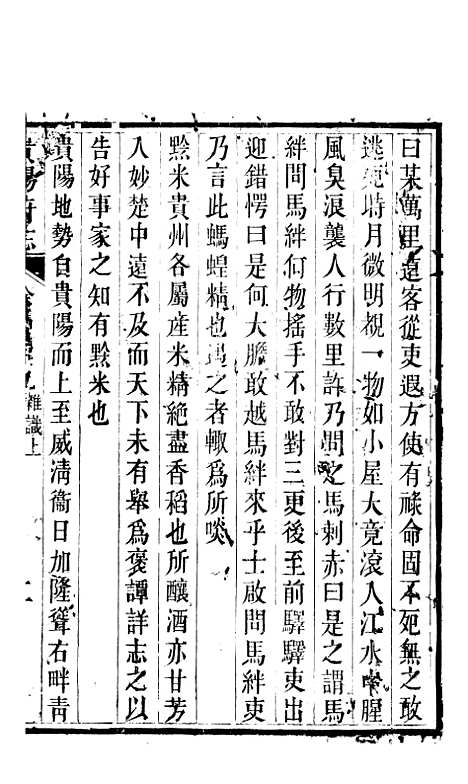 曰某萬里遠客從吏遐方使有祿命固不死無之敢
逃死時月微明覩一物如小屋大竟滾入江水中腥
風臭浪襲人行數里許乃問之馬刺赤曰是之謂馬
絆問馬絆何物搖手不敢對三更後至前驛驛吏出
迎錯愕曰是何大膽敢越馬絆來乎士啟問馬絆吏
乃言此螞蝗精也遇之者輙為所啖
黔米貴州各屬產米精絕盡香稻也所釀酒亦甘芳
入妙楚中遠不及而天下未有舉為褒譚詳志之以
告好事家之知有黔米也
貴陽地勢自貴陽而上至威清衞日加隆聳右畔青
貴陽府志
雜識上